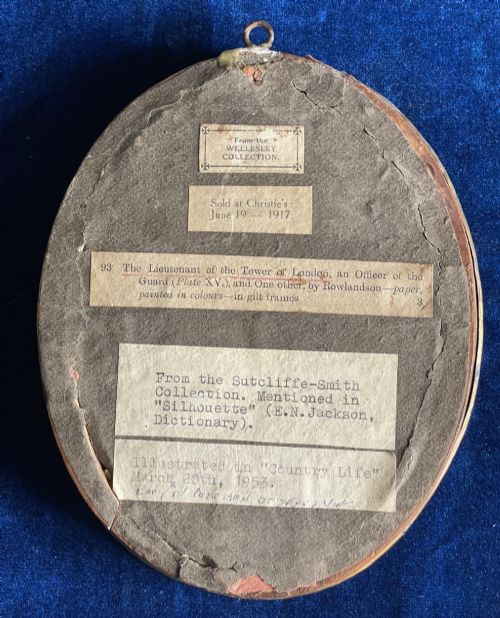 From the
WELLESLEY
COLLECTION.
Sold at Christie's:
June 19 — 1917
93 The Lieutenant of the Tower of London, an Officer of the
Guard (Plate XV.), and One other, by Rowlandson—paper,
painted in colours—in gilt frames 3
From the Sutcliffe-Smith
Collection. Mentioned in
"Silhouette" (E.N.Jackson,
Dictionary).
Illustrated in "Country Life"
March 20th, 1953.